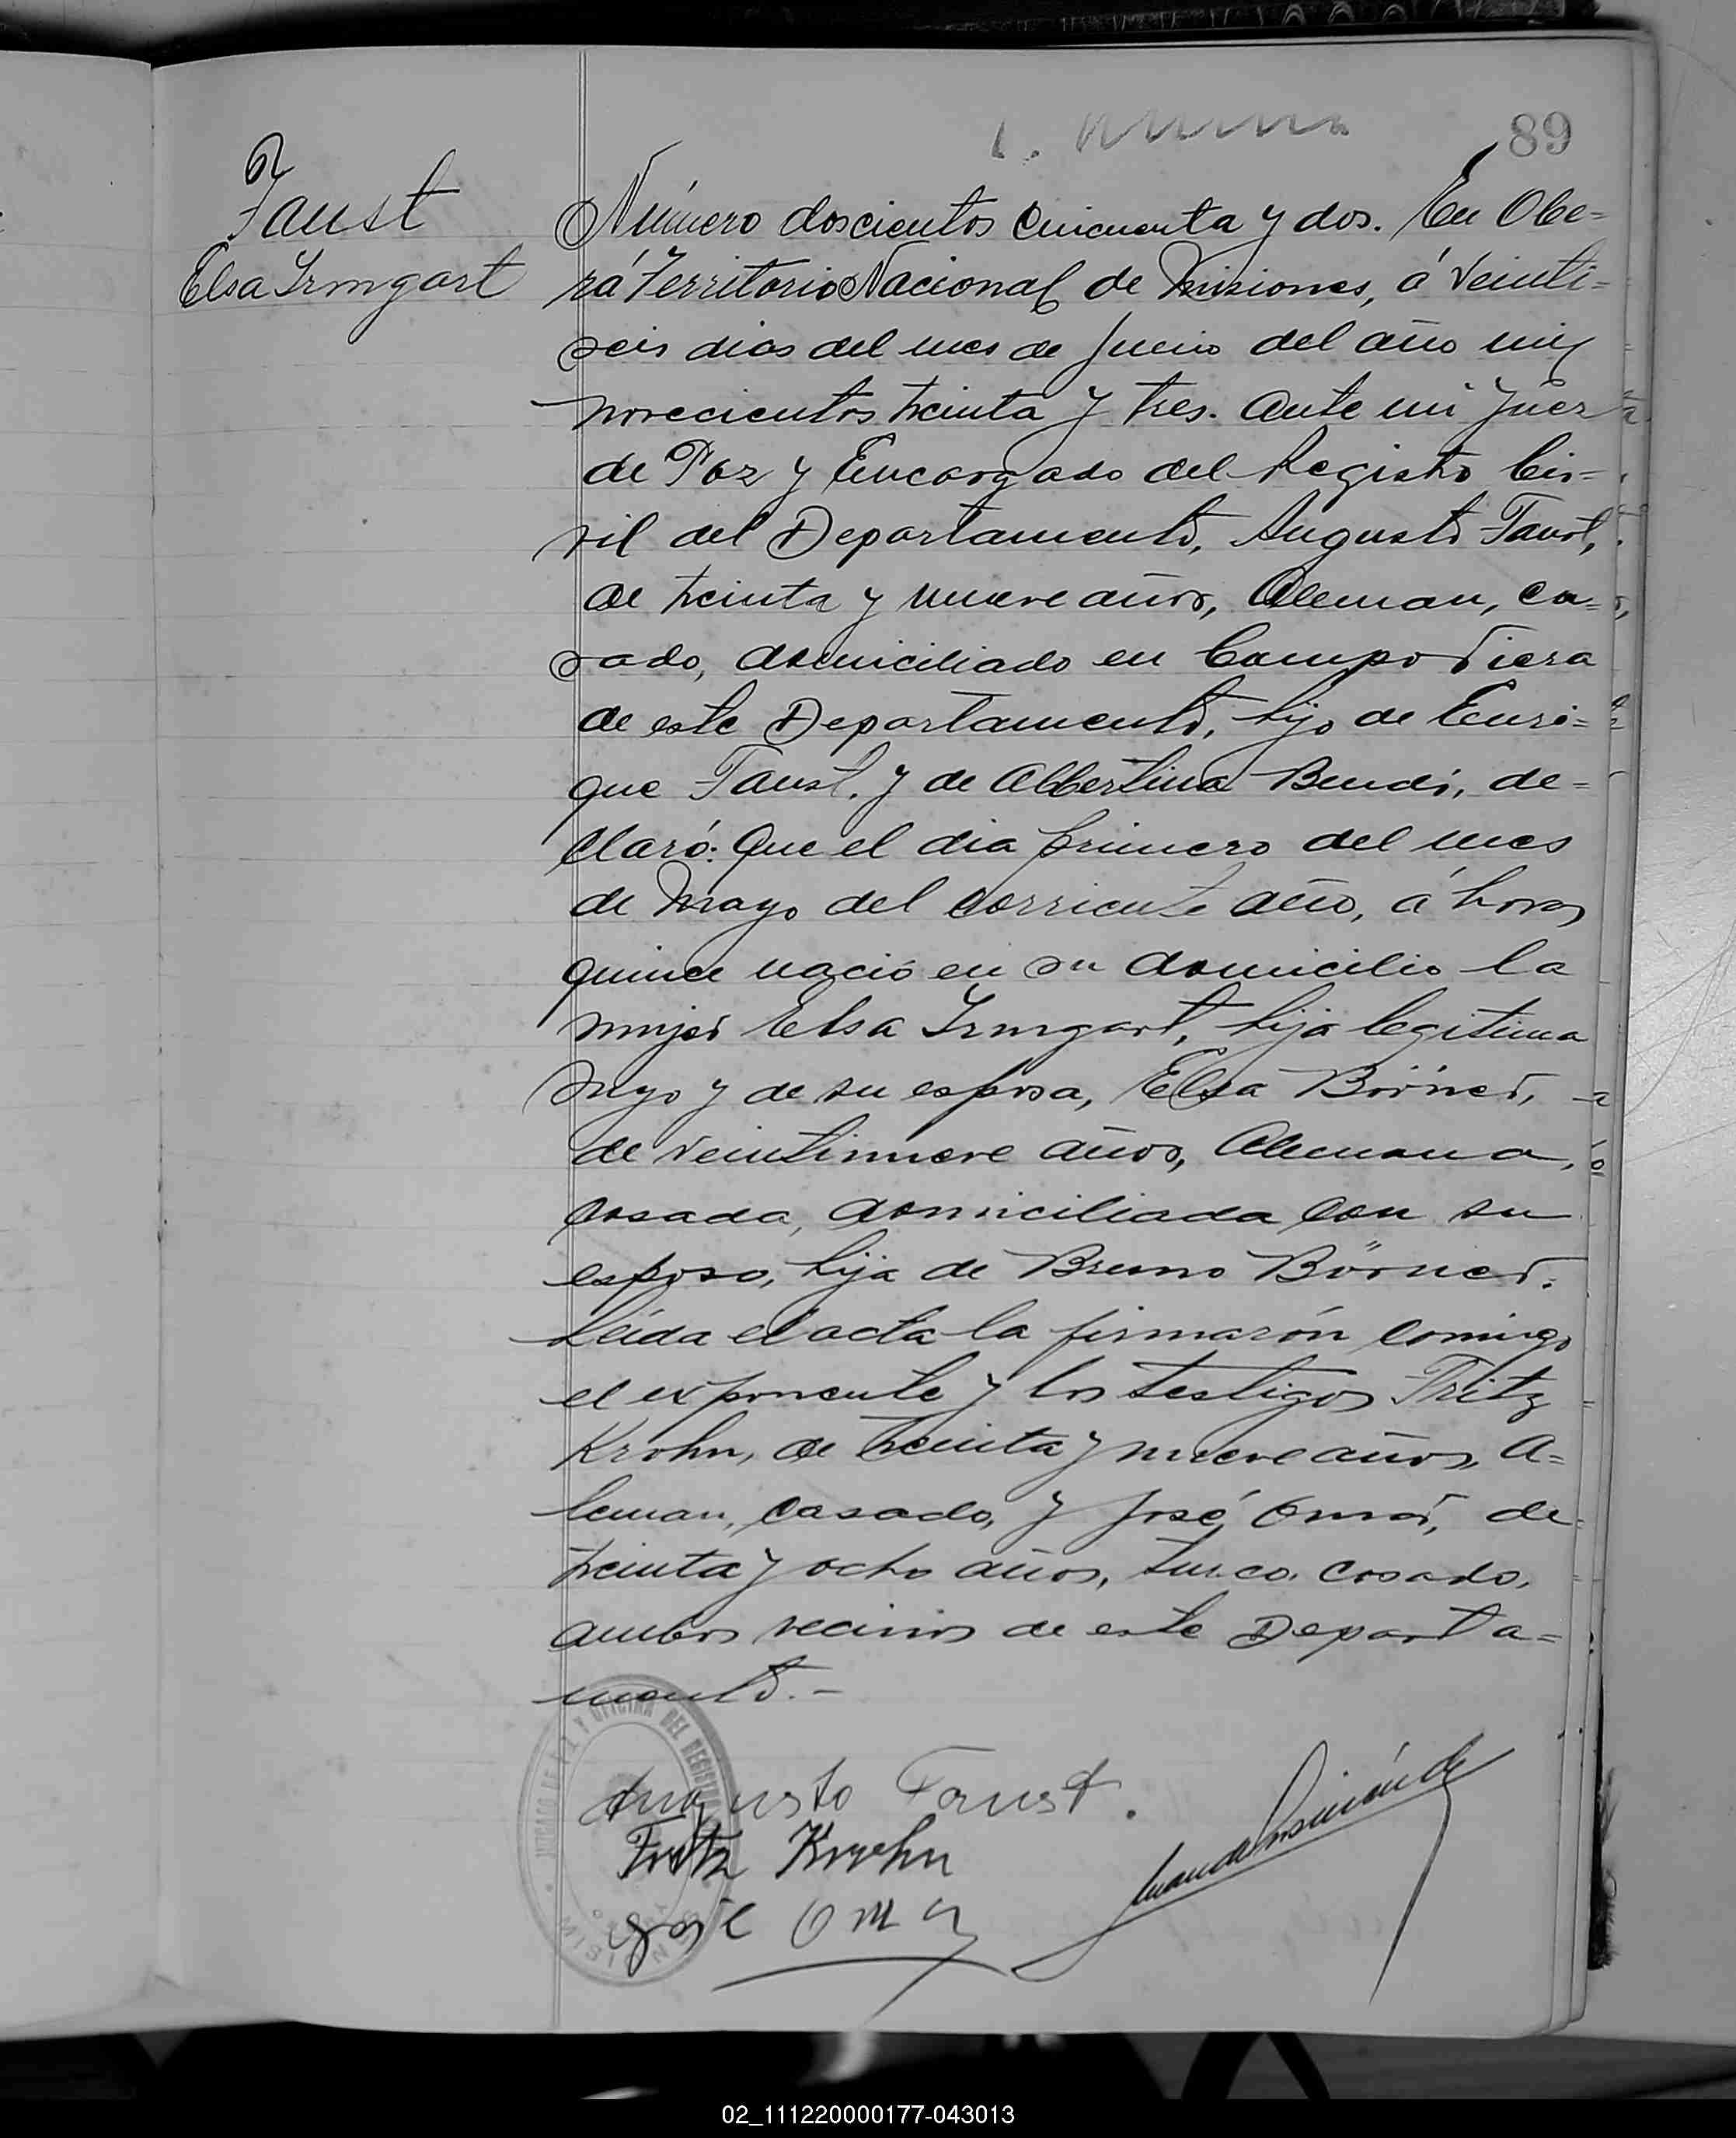 89
Faust
Elsa Irmgart
Número doscientos cincuenta y dos. En Obe=
rá Territorio Nacional de Misiones, á veinti=
seis dias del mes de Junio del año mil
novecientos treinta y tres. Ante mi Juez
de Paz y Encargado del Registro Ci=
vil del Departamento, Augusto Faust,
de treinta y nueve años, Aleman, ca=
sado, domiciliado en Campo Viera
de este Departamento, hijo de Enri=
que Faust, y de Albertina, de=
claró: Que el dia primero del mes
de Mayo del corriente año, á horas
quince nació en su domicilio la
mujer Elsa Irmgart, hija legitima
suya y de su esposa, Elsa Börner,
de veintinueve años, Alemana,
casada, domiciliada con su
esposo, hija de Bruno Börner.
Leida el acta la firmarón comigo
el exponente y los testigos Fritz
Krohn, de treinta y nueve años, A=
leman, casado, y José Omar, de
treinta y ocho años, turco, casado,
ambos vecinos de este Departa=
mento.-
JUZGADO DE PAZ Y OFICINA DEL REGISTRO
MISIONES
Augusto Faust.
Fritz Krohn
José Omar
02_111220000177-043013